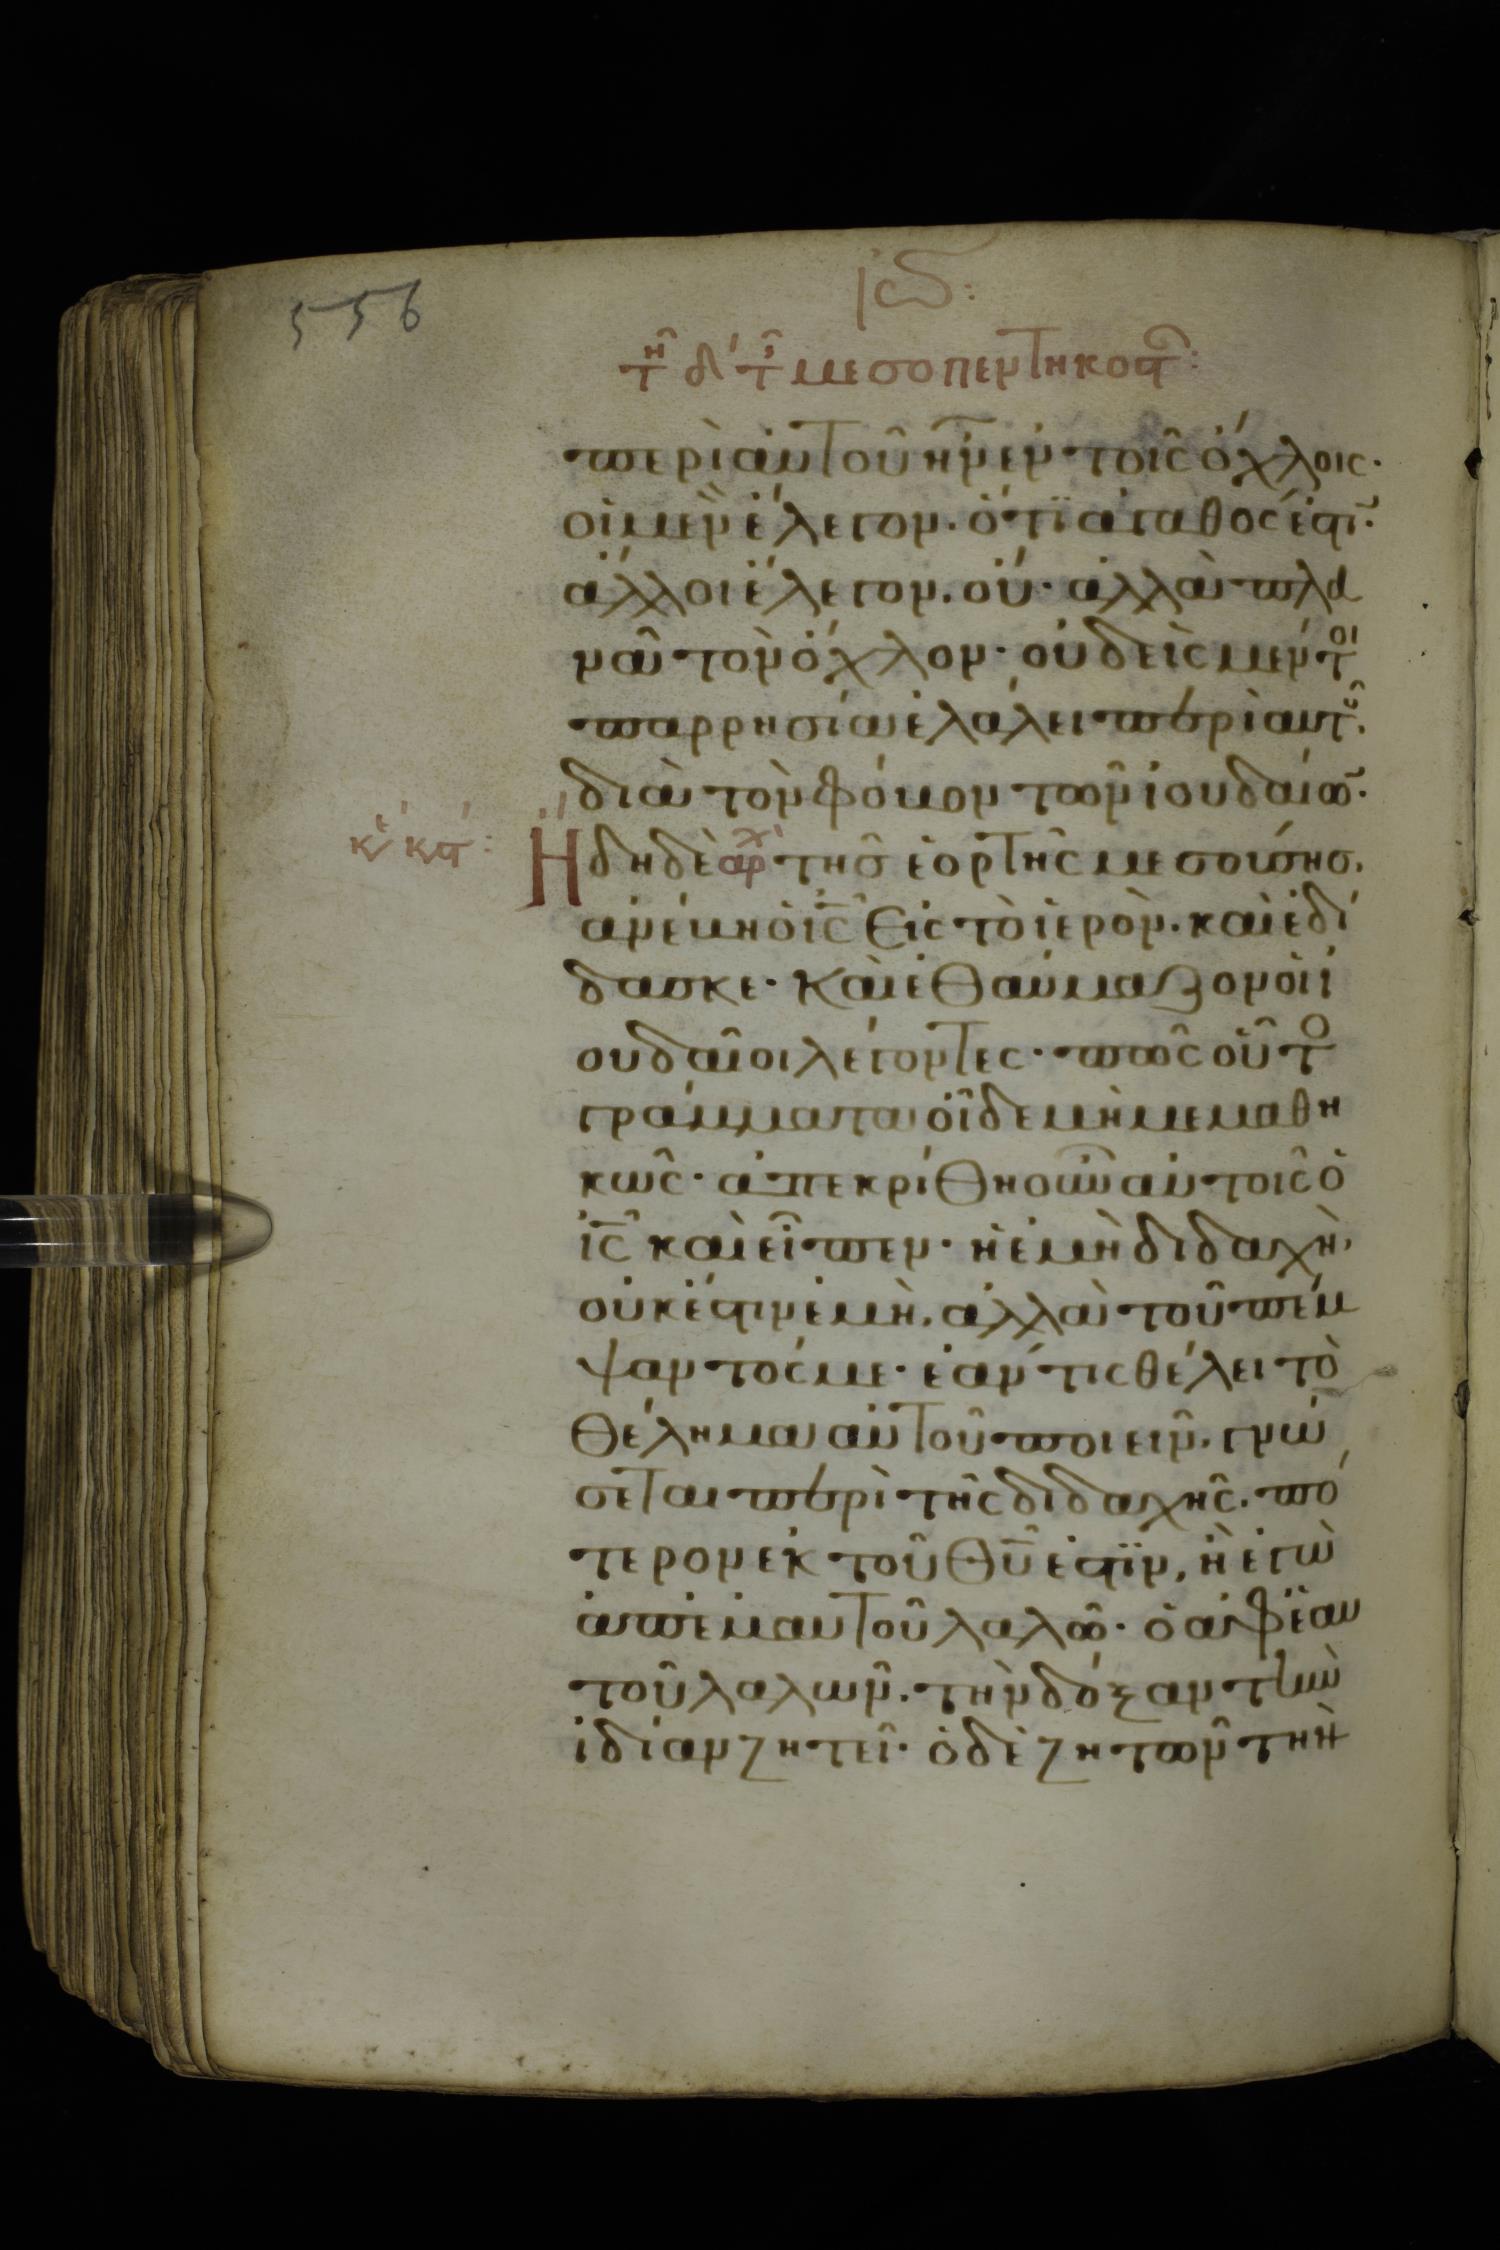 556
ιω:
τῆ δ' τ̑ μεσοπεντηκοστ:
περὶ αὐτοῦ ἦν ἐν τοῖς ὄχλοις·
οἱ μὲν ἔλεγον. ὅτι ἀγαθός ἐστι̅·
ἄλλοι ἔλεγον. οὔ· ἀλλὰ πλα
νᾶ τὸν ὄχλον· οὐδεὶς μέντοι
παρρησία ἐλάλει περὶ αυτοῦ.
διὰ τὸν φόβον τῶν ἰουδαίω̅·
κε κστ: Ἤδη δὲ αρχ τῆς ἑορτῆς μεσούσησ,
ἀνέβη ὁ ις̅ Εἰς τὸ ἱερὸν. καὶ ἐδί
δασκε· Καὶ ἐθαύμαζον οἱ ἰ
ουδαῖοι λέγοντες· πῶς οὗτο
γράμματα οἶδε μὴ μεμαθη
κῶς· ἀπεκρίθη οὖν αὐτοῖς ὁ
ις̅ καὶ εἶπεν· ἡ ἐμὴ διδαχὴ,
οὐκ ἔστιν ἐμὴ, ἀλλὰ τοῦ πέμ
ψαντός με· ἐάν τις θέλει τὸ
θέλημα αὐτοῦ ποιεῖν, γνώ
σεται περὶ τῆς διδαχῆς. πό
τερον ἐκ τοῦ θυ̅ ἐστὶν, ἢ ἐγὼ
ἀπ' ἐμαυτοῦ λαλῶ· ὁ ἀφ' ἑαυ
τοῦ λαλῶν. τὴν δόξαν τὴν
ἰδίαν ζητεῖ· ὁ δὲ ζητῶν τὴν